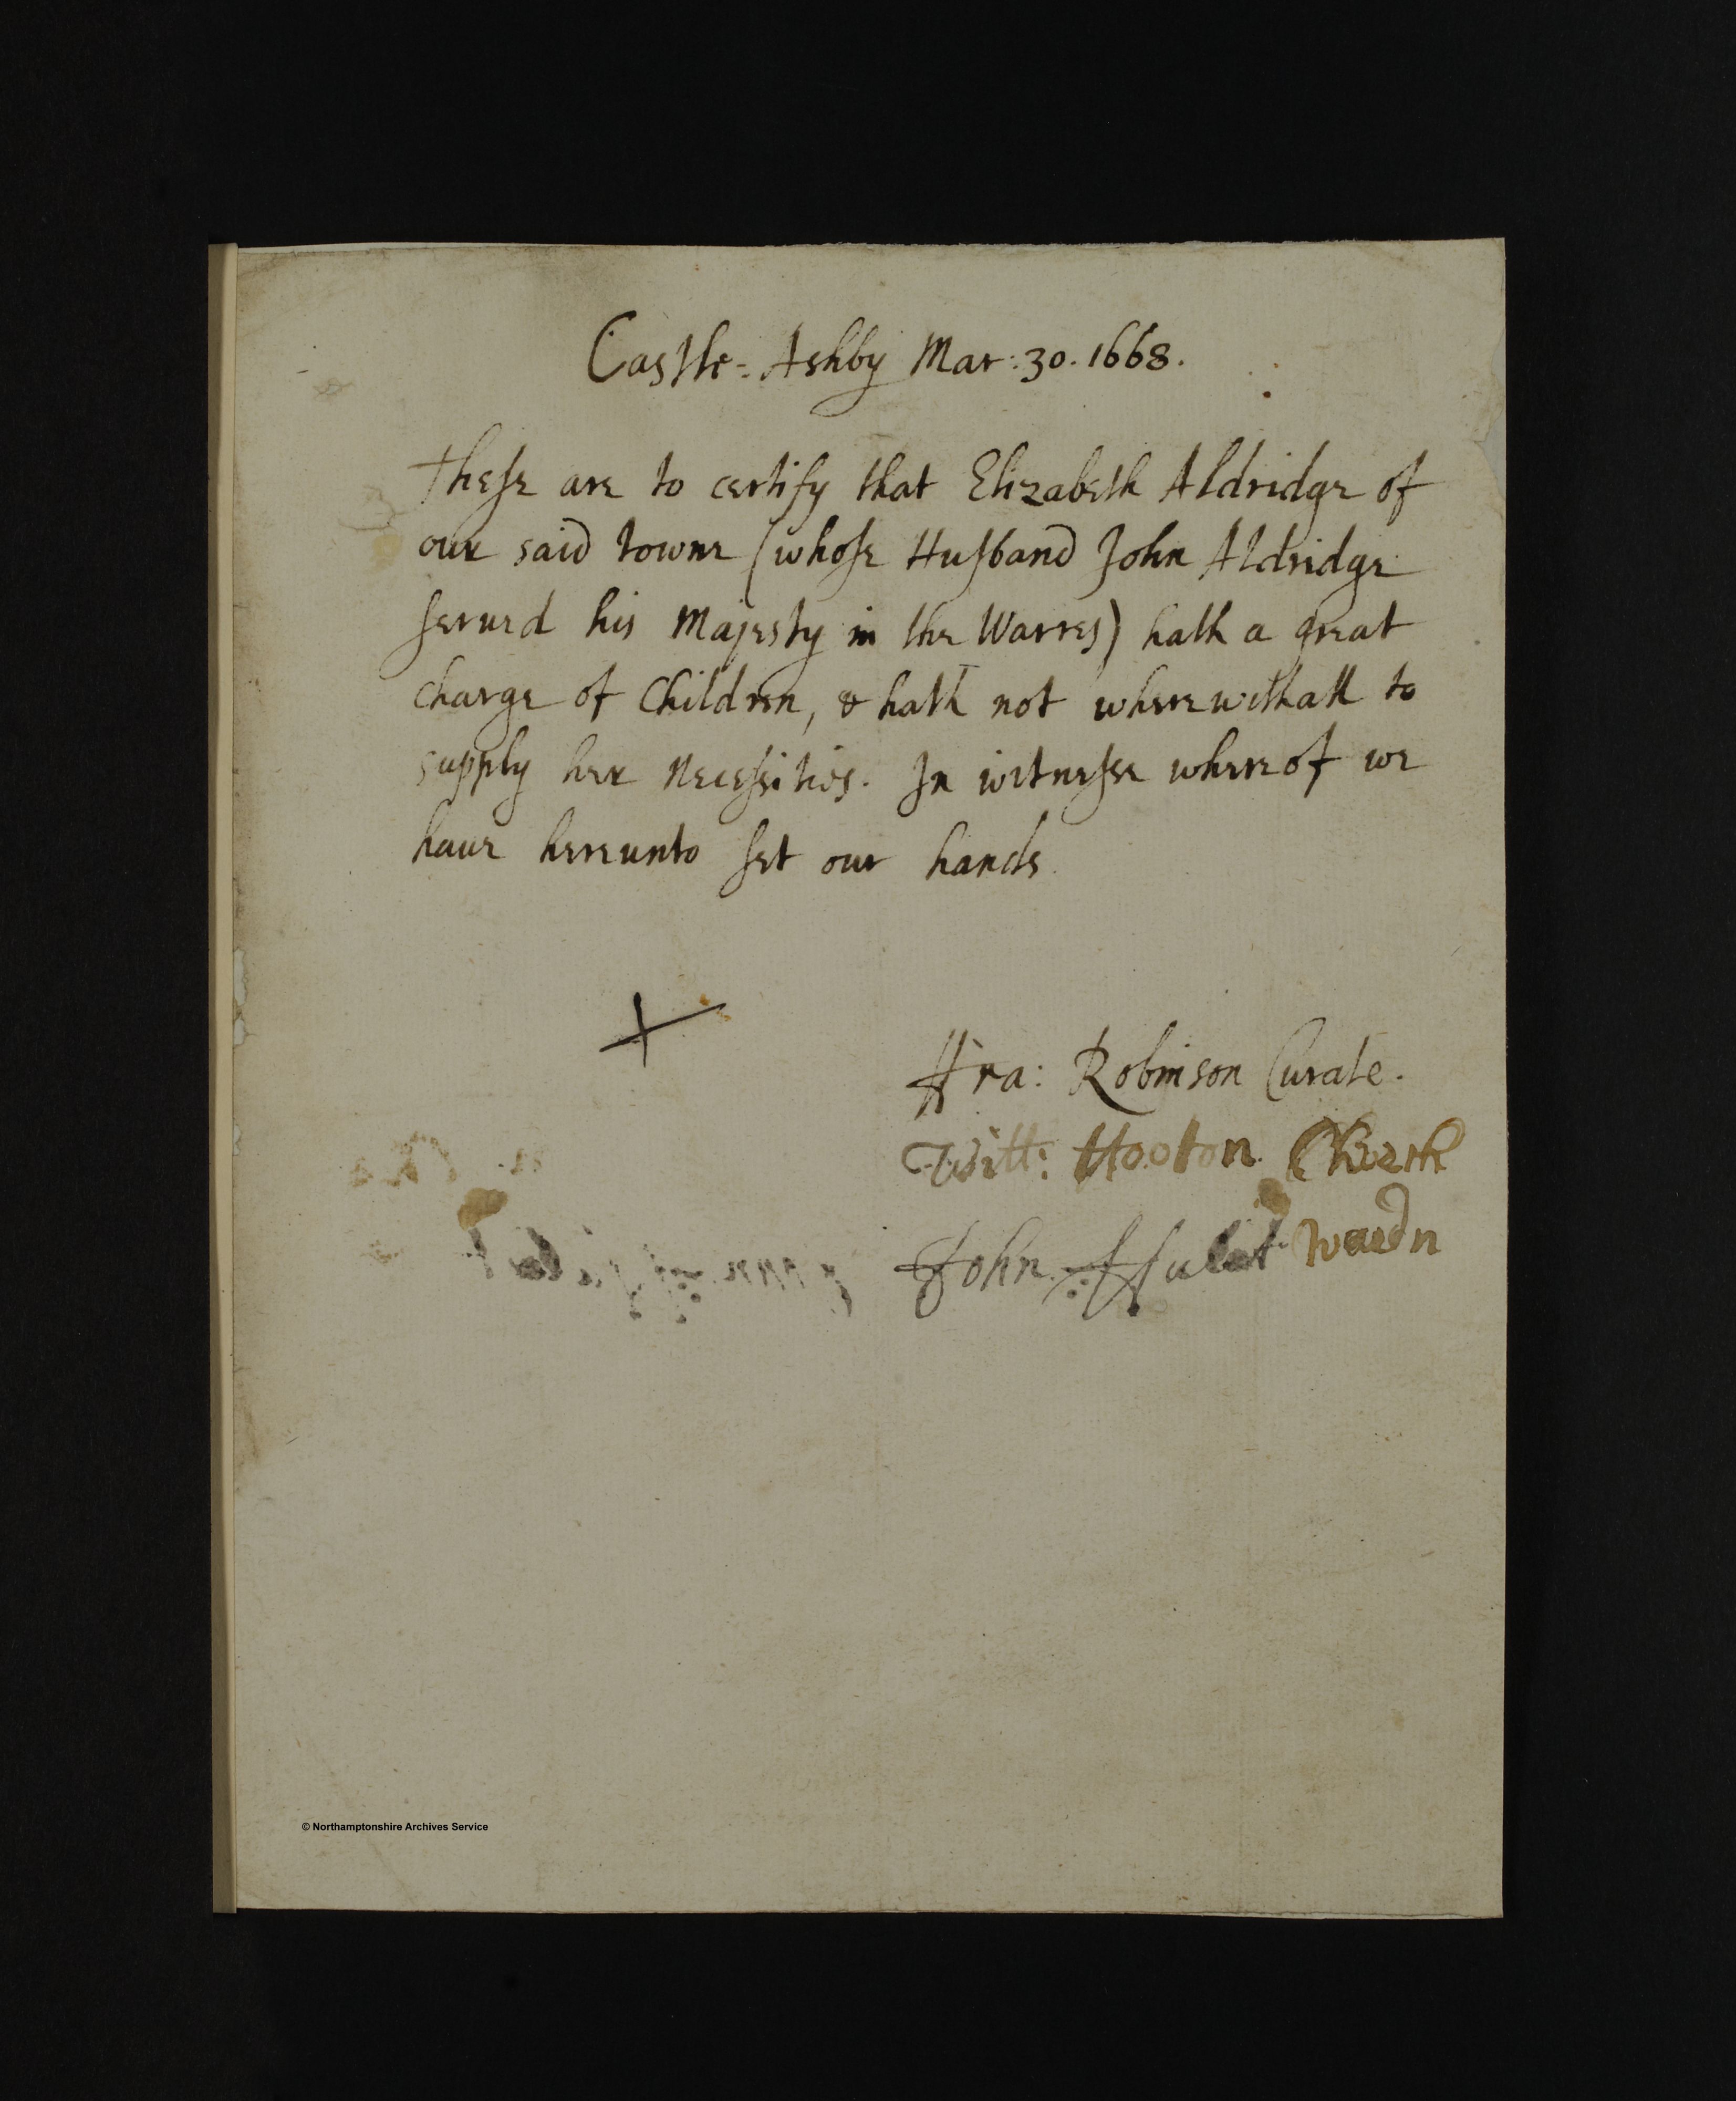 Castle-Ashby Mar: 30. 1668.
These are to certify that Elizabeth Aldridge of
our said towne (whose Husband John Aldridge
serued his Majesty in the Warres) hath a great
charge of Children, & hath not wherewithall to
supply her necessities. In witnesse whereof we
haue hereunto set our hands.
ffra: Robinson Curate.
Will: Hooton Church
John Hulet wardn
© Northamptonshire Archives Service